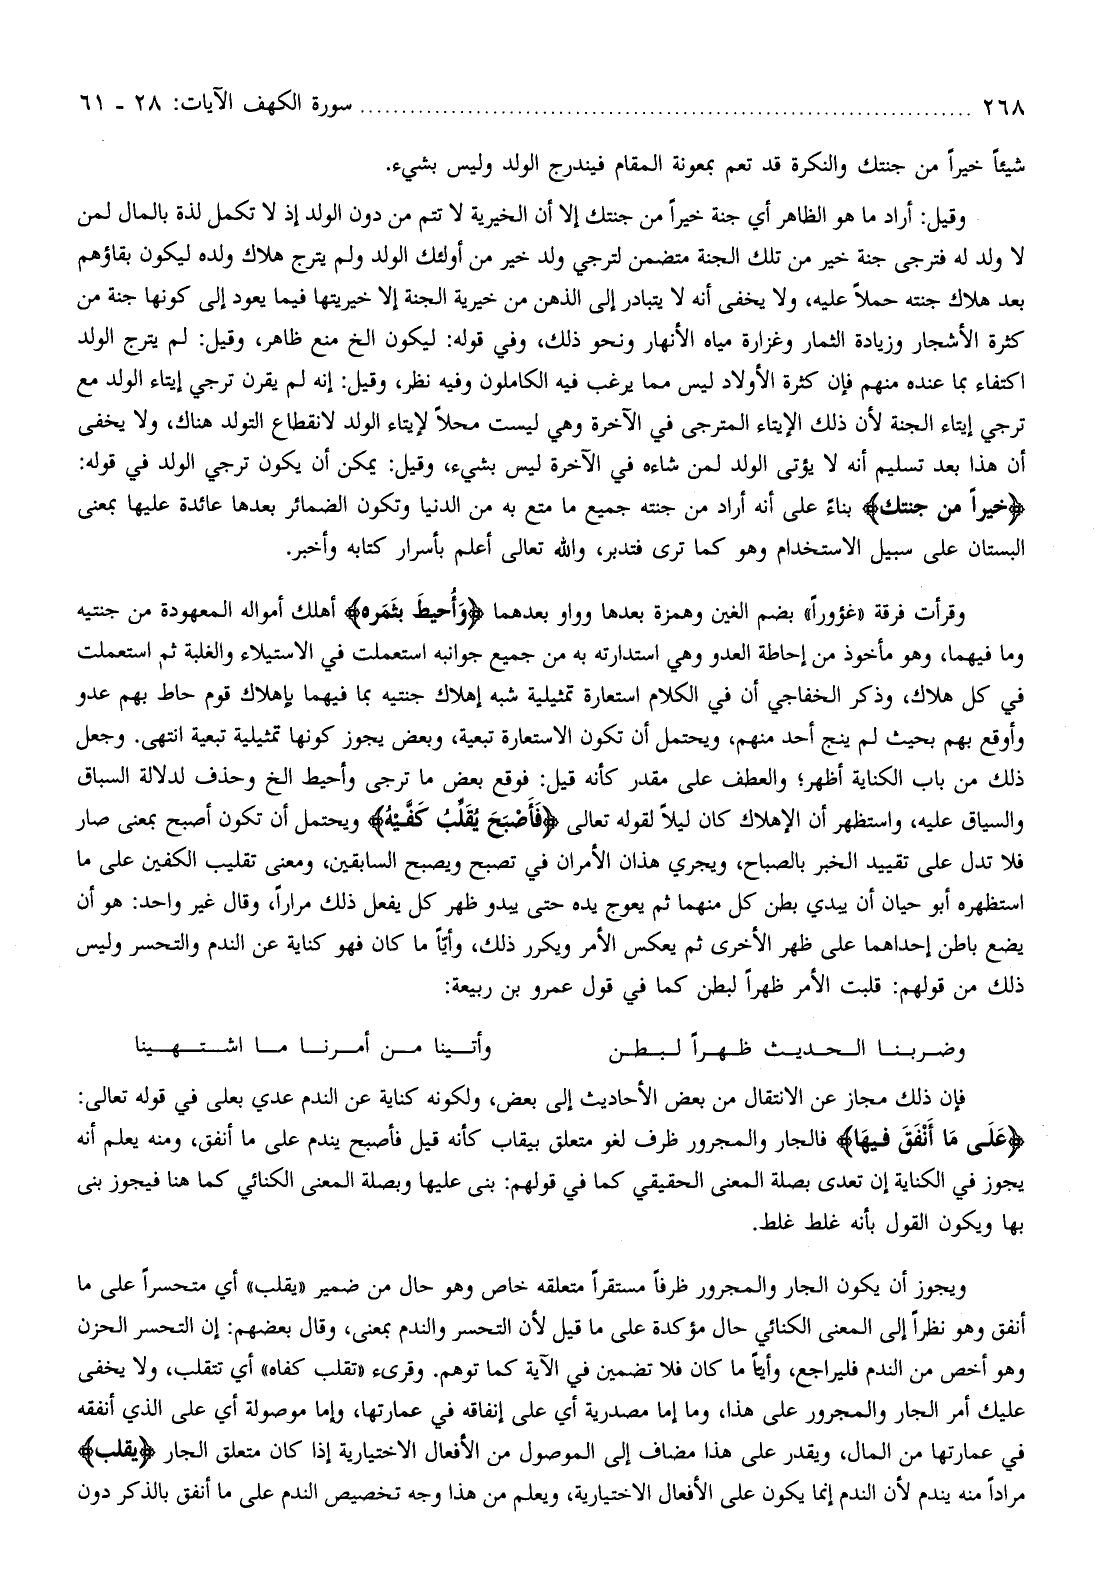 ٢٦٨ ........................................................................ سورة الكهف الآيات: ٢٨ - ٦١
شيئاً خيراً من جنتك والنكرة قد تعم بمعونة المقام فيندرج الولد وليس بشيء.
وقيل: أراد ما هو الظاهر أي جنة خيراً من جنتك إلا أن الخيرية لا تتم من دون الولد إذ لا تكمل لذة بالمال لمن
لا ولد له فترجى جنة خير من تلك الجنة متضمن لترجي ولد خير من أولئك الولد ولم يترج هلاك ولده ليكون بقاؤهم
بعد هلاك جنته حملاً عليه، ولا يخفى أنه لا يتبادر إلى الذهن من خيرية الجنة إلا خيريتها فيما يعود إلى كونها جنة من
كثرة الأشجار وزيادة الثمار وغزارة مياه الأنهار ونحو ذلك، وفي قوله: ليكون الخ منع ظاهر، وقيل: لم يترج الولد
اكتفاء بما عنده منهم فإن كثرة الأولاد ليس مما يرغب فيه الكاملون وفيه نظر، وقيل: إنه لم يقرن ترجي إيتاء الولد مع
ترجي إيتاء الجنة لأن ذلك الإيتاء المترجى في الآخرة وهي ليست محلاً لإيتاء الولد لانقطاع التولد هناك، ولا يخفى
أن هذا بعد تسليم أنه لا يؤتى الولد لمن شاءه في الآخرة ليس بشيء، وقيل: يمكن أن يكون ترجي الولد في قوله:
﴿خيراً من جنتك﴾ بناءً على أنه أراد من جنته جميع ما متع به من الدنيا وتكون الضمائر بعدها عائدة عليها بمعنى
البستان على سبيل الاستخدام وهو كما ترى فتدبر، والله تعالى أعلم بأسرار كتابه وأخبر.
وقرأت فرقة «غؤوراً» بضم الغين وهمزة بعدها وواو بعدهما ﴿وَأُحيطَ بثَمَره﴾ أهلك أمواله المعهودة من جنتيه
وما فيهما، وهو مأخوذ من إحاطة العدو وهي استدارته به من جميع جوانبه استعملت في الاستيلاء والغلبة ثم استعملت
في كل هلاك، وذكر الخفاجي أن في الكلام استعارة تمثيلية شبه إهلاك جنتيه بما فيهما بإهلاك قوم حاط بهم عدو
وأوقع بهم بحيث لم ينج أحد منهم، ويحتمل أن تكون الاستعارة تبعية، وبعض يجوز كونها تمثيلية تبعية انتهى. وجعل
ذلك من باب الكناية أظهر؛ والعطف على مقدر كأنه قيل: فوقع بعض ما ترجى وأحيط الخ وحذف لدلالة السباق
والسياق عليه، واستظهر أن الإهلاك كان ليلاً لقوله تعالى ﴿فَأَصْبَحَ يُقَلِّبُ كَفَّيْهُ﴾ ويحتمل أن تكون أصبح بمعنى صار
فلا تدل على تقييد الخبر بالصباح، ويجري هذان الأمران في تصبح ويصبح السابقين، ومعنى تقليب الكفين على ما
استظهره أبو حيان أن يبدي بطن كل منهما ثم يعوج يده حتى يبدو ظهر كل يفعل ذلك مراراً، وقال غير واحد: هو أن
يضع باطن إحداهما على ظهر الأخرى ثم يعكس الأمر ويكرر ذلك، وأيّاً ما كان فهو كناية عن الندم والتحسر وليس
ذلك من قولهم: قلبت الأمر ظهراً لبطن كما في قول عمرو بن ربيعة:
وضربنا الحديث ظهراً لبطن    وأتينا من أمرنا ما اشتهينا
فإن ذلك مجاز عن الانتقال من بعض الأحاديث إلى بعض، ولكونه كناية عن الندم عدي بعلى في قوله تعالى:
﴿عَلَى مَا أَنْفَقَ فيهَا﴾ فالجار والمجرور ظرف لغو متعلق بيقاب كأنه قيل فأصبح يندم على ما أنفق، ومنه يعلم أنه
يجوز في الكناية إن تعدى بصلة المعنى الحقيقي كما في قولهم: بنى عليها وبصلة المعنى الكنائي كما هنا فيجوز بنى
بها ويكون القول بأنه غلط غلط.
ويجوز أن يكون الجار والمجرور ظرفاً مستقراً متعلقه خاص وهو حال من ضمير «يقلب» أي متحسراً على ما
أنفق وهو نظراً إلى المعنى الكنائي حال مؤكدة على ما قيل لأن التحسر والندم بمعنى، وقال بعضهم: إن التحسر الحزن
وهو أخص من الندم فليراجع، وأيّاً ما كان فلا تضمين في الآية كما توهم. وقرىء «تقلب كفاه» أي تتقلب، ولا يخفى
عليك أمر الجار والمجرور على هذا، وما إما مصدرية أي على إنفاقه في عمارتها، وإما موصولة أي على الذي أنفقه
في عمارتها من المال، ويقدر على هذا مضاف إلى الموصول من الأفعال الاختيارية إذا كان متعلق الجار ﴿يقلب﴾
مراداً منه يندم لأن الندم إنما يكون على الأفعال الاختيارية، ويعلم من هذا وجه تخصيص الندم على ما أنفق بالذكر دون